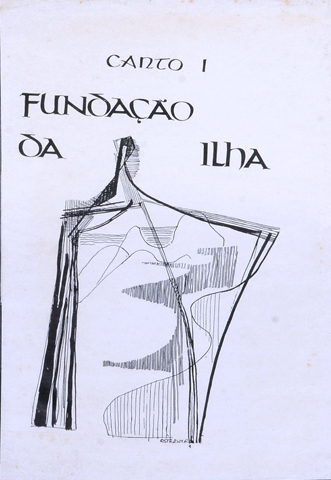 CANTO I
FUNDAÇÃO
DA ILHA